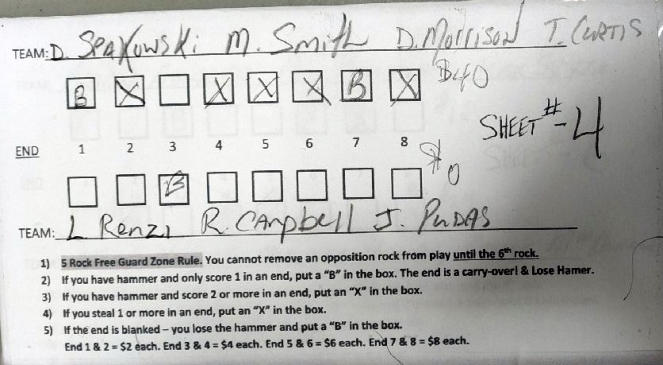 TEAM: D. SPAKOWSKi M. Smith D. Morrison T. CURTIS
B X X X X B X $40
SHEET #-4
END 1 2 3 4 5 6 7 8
B $0
TEAM: L Renzi R. CAmpbell J. PUDAS
1) 5 Rock Free Guard Zone Rule. You cannot remove an opposition rock from play until the 6th rock.
2) If you have hammer and only score 1 in an end, put a “B” in the box. The end is a carry-over! & Lose Hamer.
3) If you have hammer and score 2 or more in an end, put an “X” in the box.
4) If you steal 1 or more in an end, put an “X” in the box.
5) If the end is blanked – you lose the hammer and put a “B” in the box.
End 1 & 2 = $2 each. End 3 & 4 = $4 each. End 5 & 6 = $6 each. End 7 & 8 = $8 each.